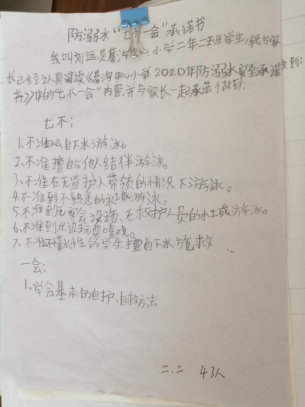 防溺水“七不一会”承诺书
我叫刘　是　沟中心小学二年二班学生,我与家
长已经认真阅读《　沟中心小学2020年防溺水安全承诺
书》中的“七不一会”内容,并与家长一起承诺做到:
七不:
1.不准私自下水游泳。
2.不准擅自与他人结伴游泳。
3.不准在无监护人带领的情况下游泳。
4.不准到不熟悉的水域游泳。
5.不准到无安全设施、无救护人员的水域游泳。
6.不准到水边玩耍嬉戏。
7.不准不懂水性的学生擅自下水施救
一会:
1.学会基本的自护、自救方法
二.二 43人